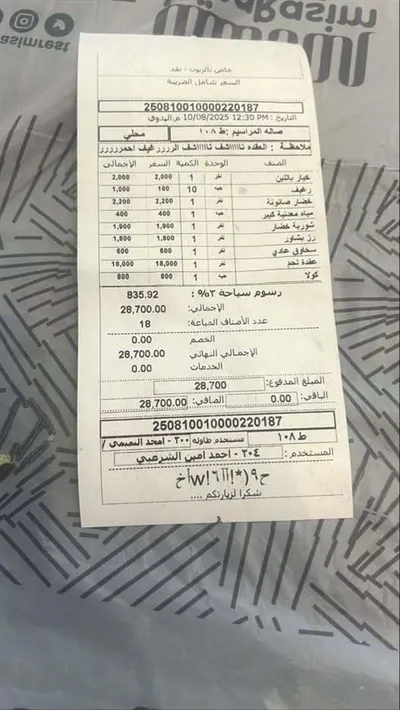 Rasim
asimrest
خاص بالزبون - نقد
السعر شامل الضريبة
250810010000220187
التاريخ : 10/08/2025 12:30 PM م.البدوي
صاله المراسيم :ط ١٠٨ محلي
ملاحظة : العقده ناااااشف ناااااشف الررررغيف احمررررر
الصنف الوحدة الكمية السعر الإجمالي
خيار بالبن نفر 1 2,000 2,000
رغيف حبه 10 100 1,000
خضار صانونة نفر 1 2,200 2,200
مياه معدنية كبير 1 400 400
شوربة خضار نفر 1 1,900 1,900
رز بشاور نفر 1 1,800 1,800
سحاوق عادي نفر 1 600 600
عقدة لحم نفر 1 18,000 18,000
كولا حبه 1 800 800
رسوم سياحة ٣% : 835.92
الإجمالي: 28,700.00
عدد الأصناف المباعة: 18
الخصم 0.00
الإجمالي النهائي 28,700.00
الخدمات 0.00
المبلغ المدفوع: 28,700
الباقي: 0.00 الصافي: 28,700.00
250810010000220187
ط ١٠٨ مستخدم طاوله ٣٠٠ - امجد التميمي /
المستخدم : ٣٠٤ - احمد امين الشرعبي
شكرا لزيارتكم ....